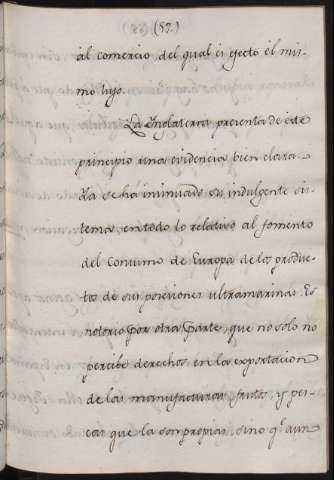 (57.)
al comercio, del qual es efecto el mis-
mo lujo.
La Ynglaterra presenta de este
principio una evidencia bien clara.
Ya se ha insinuado su indulgente sis-
tema, en todo lo relativo al fomento
del Consumo de Europa de los produc-
tos de sus posesiones ultramarinas. Es
notorio por otra parte, que no solo no
percibe derechos en la exportacion
de las manufacturas, frutos, y pes-
cas que la son propias, sino q.e aun